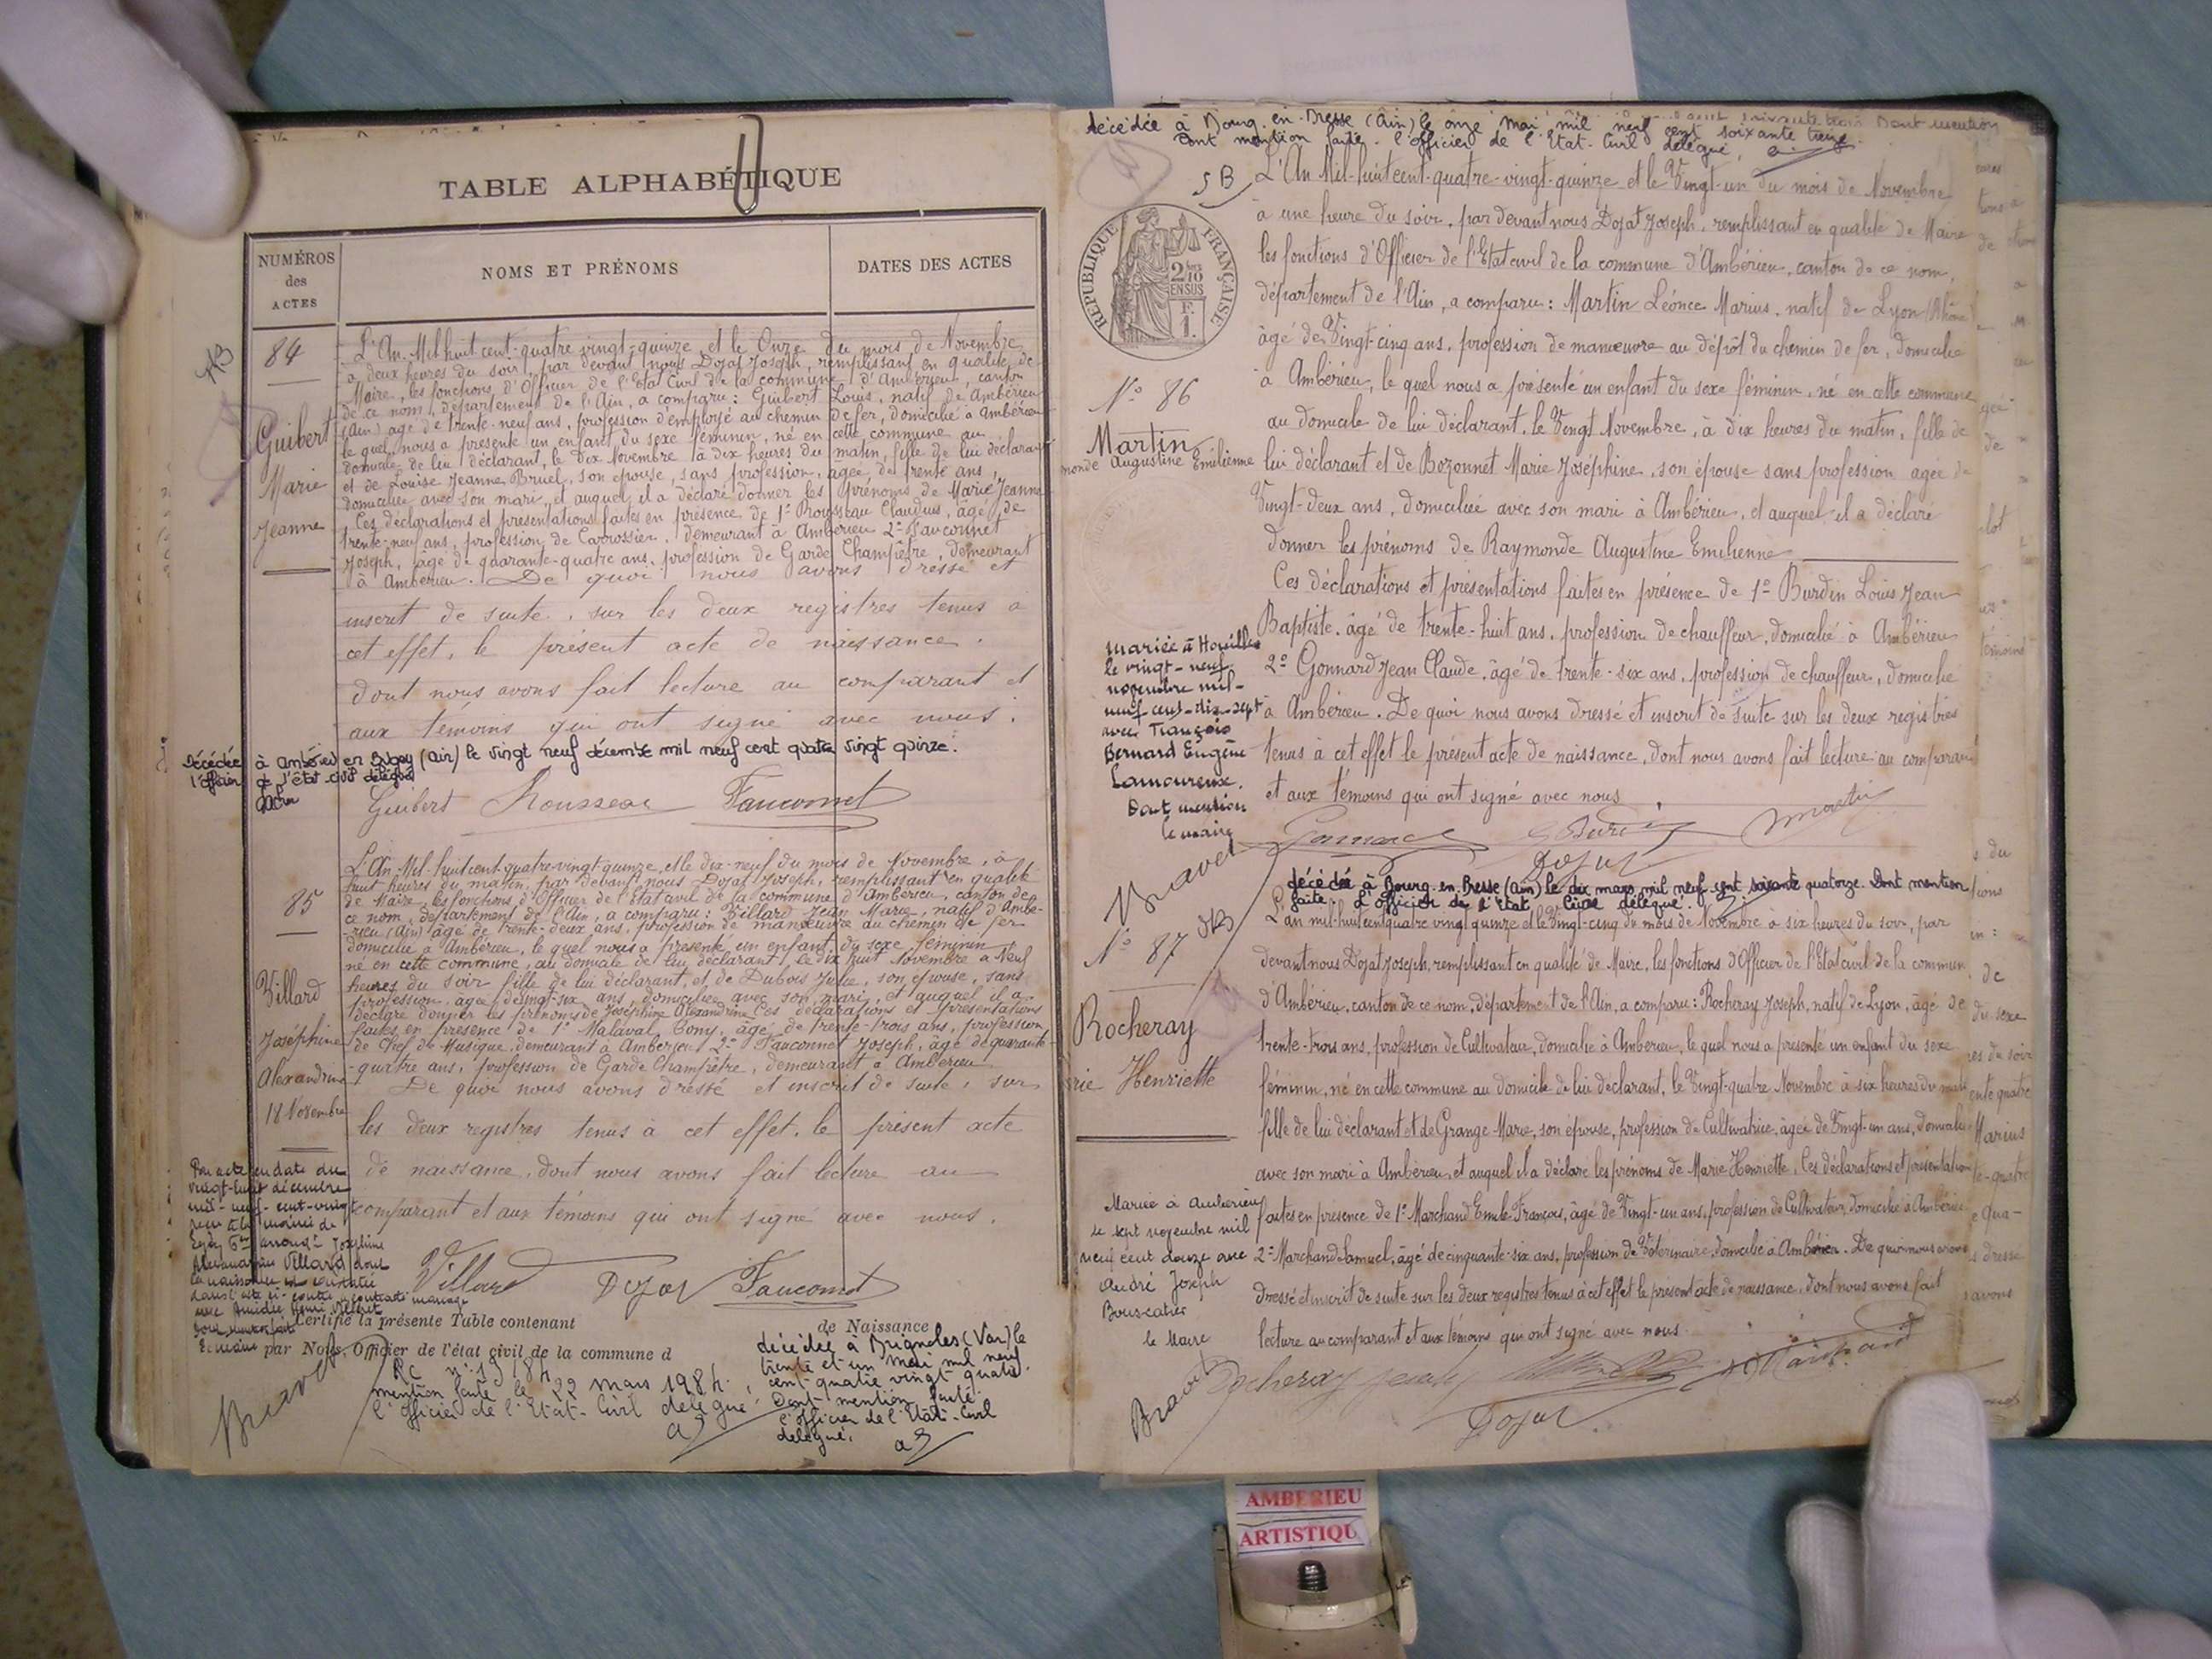 TABLE ALPHABÉTIQUE
NUMÉROS
des
ACTES
NOMS ET PRÉNOMS
DATES DES ACTES
84
Guibert
Marie
Jeanne
L'An Mil huit cent quatre vingt-quinze et le Onze du mois de Novembre
à deux heures du soir, par devant nous Dojat Joseph, remplissant en qualité de
Maire, les fonctions d'Officier de l'Etat Civil de la commune d'Ambérieu, canton
de ce nom, département de l'Ain, a comparu : Guibert Louis, natif de Ambérieu
(Ain) agé de trente-neuf ans, profession d'employé au chemin de fer, domicilié à Ambérieu
le quel nous a présenté un enfant du sexe féminin, né en cette commune au
domicile de lui déclarant, le Dix Novembre à dix heures du matin, fille de lui déclarant
et de Louise Jeanne Bruel, son épouse, sans profession, agée de trente ans,
domiciliée avec son mari, et auquel il a déclaré donner les prénoms de Marie Jeanne
Ces déclarations et présentations faites en présence de 1º Rousseau Claudius, âgé de
trente-neuf ans, profession de Carrossier, demeurant à Ambérieu 2º Fauconnet
Joseph, âgé de quarante-quatre ans, profession de Garde Champêtre, demeurant
à Ambérieu. De quoi nous avons dressé et
inscrit de suite, sur les deux registres tenus à
cet effet, le présent acte de naissance.
dont nous avons fait lecture au comparant et
aux témoins qui ont signé avec nous.
Décédée à Ambérieu en Bugey (Ain) le vingt neuf décembre mil neuf cent quatre vingt quinze.
l'officier de l'état-civil délégué
Guibert Rousseau Fauconnet
85
Villard
Joséphine
Alexandrine
18 Novembre
L'An Mil-huit cent-quatre-vingt-quinze, et le dix-neuf du mois de Novembre, à
huit heures du matin, par devant nous Dojat Joseph, remplissant en qualité
de Maire, les fonctions d'Officier de l'Etat civil de la commune d'Ambérieu, canton de
ce nom, département de l'Ain, a comparu : Villard Jean Marie, natif d'Ambé-
-rieu (Ain) âgé de trente-deux ans, profession de manœuvre au chemin de fer
domicilié à Ambérieu, le quel nous a présenté un enfant du sexe féminin
né en cette commune, au domicile de lui déclarant, le dix huit Novembre à Neuf
heures du soir fille de lui déclarant, et de Dubois Julie, son épouse, sans
profession, agée de vingt-six ans, domiciliée avec son mari, et auquel il a
déclaré donner les prénoms de Joséphine Alexandrine. Ces déclarations et présentations
faites en présence de 1º Malaval Cony, âgé de trente-trois ans, profession
de Chef de Musique, demeurant à Ambérieu 2º Fauconnet Joseph, âgé de quarante-
-quatre ans, profession de Garde Champêtre, demeurant à Ambérieu
De quoi nous avons dressé et inscrit de suite, sur
les deux registres tenus à cet effet, le présent acte
de naissance, dont nous avons fait lecture au
comparant et aux témoins qui ont signé avec nous.
Par acte en date du
vingt-huit décembre
mil-neuf-cent-vingt
Joséphine
Alexandrine Villard dont
la naissance est constatée
dans l'acte ci-contre a contracté mariage
avec
Villard Dojat Fauconnet
Certifié la présente Table contenant
de Naissance
par Nous, Officier de l'état civil de la commune d
RC nº 19/84
mention faite le 22 mars 1984,
l'officier de l'Etat-Civil délégué
décédée à Brignoles (Var) le
trente et un mai mil neuf
cent quatre vingt quatre.
Dont mention faite
l'officier de l'Etat-Civil
délégué.
Bravet
décédée à Bourg en Bresse (Ain) le onze mai mil neuf cent soixante treize
Dont mention faite. l'officier de l'Etat-Civil délégué,
RÉPUBLIQUE FRANÇAISE
2/10
EN SUS
F.
1.
Nº 86
Martin
monde Augustine Emilienne
L'An Mil-huit cent-quatre-vingt-quinze et le Vingt-un du mois de Novembre
à une heure du soir, par devant nous Dojat Joseph, remplissant en qualité de Maire
les fonctions d'Officier de l'Etat civil de la commune d'Ambérieu, canton de ce nom,
département de l'Ain, a comparu : Martin Léonce Marius, natif de Lyon (Rhône)
âgé de Vingt-cinq ans, profession de manœuvre au dépôt du chemin de fer, domicilié
à Ambérieu, le quel nous a présenté un enfant du sexe féminin, né en cette commune
au domicile de lui déclarant, le Vingt Novembre, à dix heures du matin, fille de
lui déclarant et de Bozonnet Marie Joséphine, son épouse sans profession agée de
Vingt-deux ans, domiciliée avec son mari à Ambérieu, et auquel il a déclaré
donner les prénoms de Raymonde Augustine Emilienne
Ces déclarations et présentations faites en présence de 1º Burdin Louis Jean
Baptiste, âgé de trente-huit ans, profession de chauffeur, domicilié à Ambérieu
2º Gonnard Jean Claude, âgé de trente-six ans, profession de chauffeur, domicilié
à Ambérieu. De quoi nous avons dressé et inscrit de suite sur les deux registres
tenus à cet effet le présent acte de naissance, dont nous avons fait lecture au comparant
et aux témoins qui ont signé avec nous.
Mariée à Houilles
le vingt-neuf
novembre mil-
neuf-cent-dix-sept
avec François
Bernard Eugène
Lamoureux.
Dont mention
le maire
Bravet
Gonnard Burdin Martin
Dojat
décédée à Bourg en Bresse (Ain) le dix mars mil neuf cent soixante quatorze. Dont mention
faite. L'officier de l'Etat Civil délégué.
Nº 87
Rocheray
rie Henriette
L'an mil-huit cent quatre vingt quinze et le Vingt-cinq du mois de Novembre à six heures du soir, par
devant nous Dojat Joseph, remplissant en qualité de Maire, les fonctions d'Officier de l'Etat civil de la commune
d'Ambérieu, canton de ce nom, département de l'Ain, a comparu : Rocheray Joseph, natif de Lyon, âgé de
trente-trois ans, profession de Cultivateur, domicilié à Ambérieu, le quel nous a présenté un enfant du sexe
féminin, né en cette commune au domicile de lui déclarant, le Vingt-quatre Novembre à six heures du matin
fille de lui déclarant et de Grange Marie, son épouse, profession de Cultivatrice, âgée de Vingt-un ans, domiciliée
avec son mari à Ambérieu, et auquel il a déclaré les prénoms de Marie Henriette. Ces déclarations et présentations
faites en présence de 1º Marchand Emile François, âgé de Vingt-un ans, profession de Cultivateur, domicilié à Ambérieu
2º Marchand Samuel, âgé de cinquante-six ans, profession de Vétérinaire, domicilié à Ambérieu. De quoi nous avons
dressé et inscrit de suite sur les deux registres tenus à cet effet le présent acte de naissance, dont nous avons fait
lecture au comparant et aux témoins qui ont signé avec nous.
Mariée à Ambérieu
le sept novembre mil
neuf cent douze avec
André Joseph
Bouscatier
le Maire
Bravet
Rocheray
Dojat
AMBERIEU
ARTISTIQU